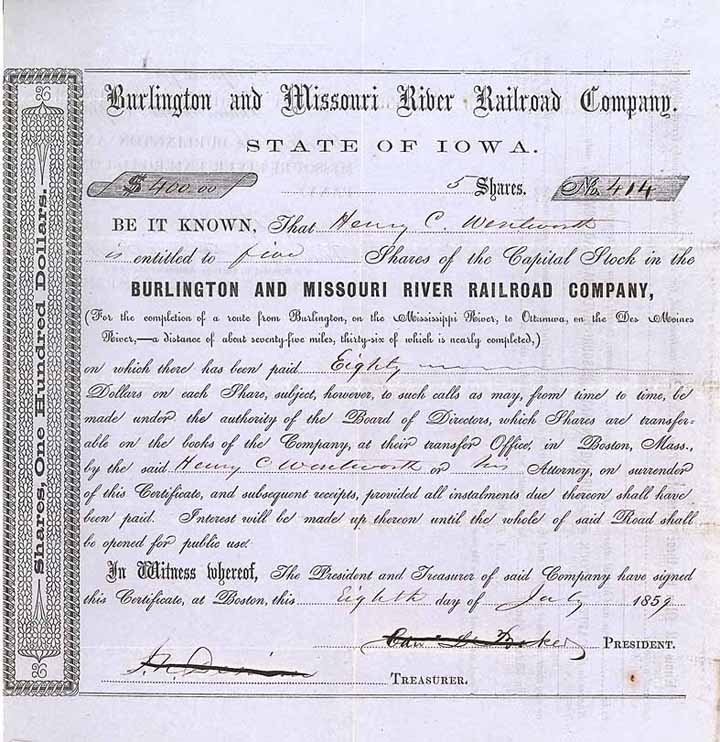 Burlington and Missouri River Railroad Company.
STATE OF IOWA.
$400.00 5 Shares. No. 414
BE IT KNOWN, That Henry C. Wentworth
is entitled to five Shares of the Capital Stock in the
BURLINGTON AND MISSOURI RIVER RAILROAD COMPANY,
(For the completion of a route from Burlington, on the Mississippi River, to Ottumwa, on the Des Moines
River,—a distance of about seventy-five miles, thirty-six of which is nearly completed,)
on which there has been paid Eighty
Dollars on each Share, subject, however, to such calls as may, from time to time, be
made under the authority of the Board of Directors, which Shares are transfer-
able on the books of the Company, at their transfer Office, in Boston, Mass.,
by the said Henry C Wentworth or his Attorney, on surrender
of this Certificate, and subsequent receipts, provided all instalments due thereon shall have
been paid. Interest will be made up thereon until the whole of said Road shall
be opened for public use.
In Witness whereof, The President and Treasurer of said Company have signed
this Certificate, at Boston, this Eighth day of July 1859
PRESIDENT.
TREASURER.
Shares, One Hundred Dollars.